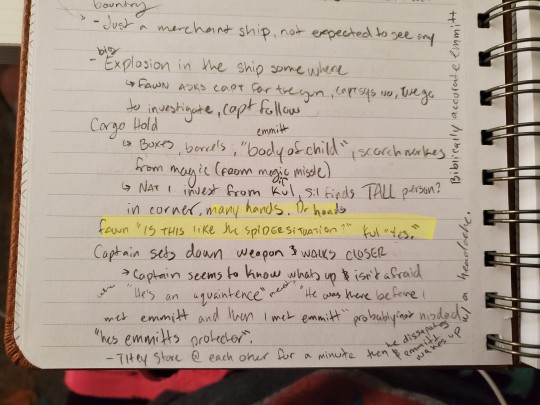 bountry
- Just a merchant ship, not expected to see any
big
- Explosion in the ship somewhere
↳ Fawn asks capt for the gun, capt says no, we go
to investigate, capt follow
Cargo Hold
emmitt
↳ Boxes, barrels, "body of child", scorch markes
from magic (from magic missle)
↳ Nat 1 invest from Kul, S:1 finds TALL person?
in corner, many hands. Or heads
Fawn "IS THIS like the SPIDER SITUATION?" Kul "Yes."
Captain sets down weapon & walks CLOSER
→ Captain seems to know whats up & isnt afraid
"He's an aquaintence" "He was there before I
met emmitt and then I met emmitt" probably not his dad
"hes emmitts protector".
- THey stare @ each other for a minute then he dissapates
& emmitt wakes up
w/ a headache.
Biblically accurate emmitt